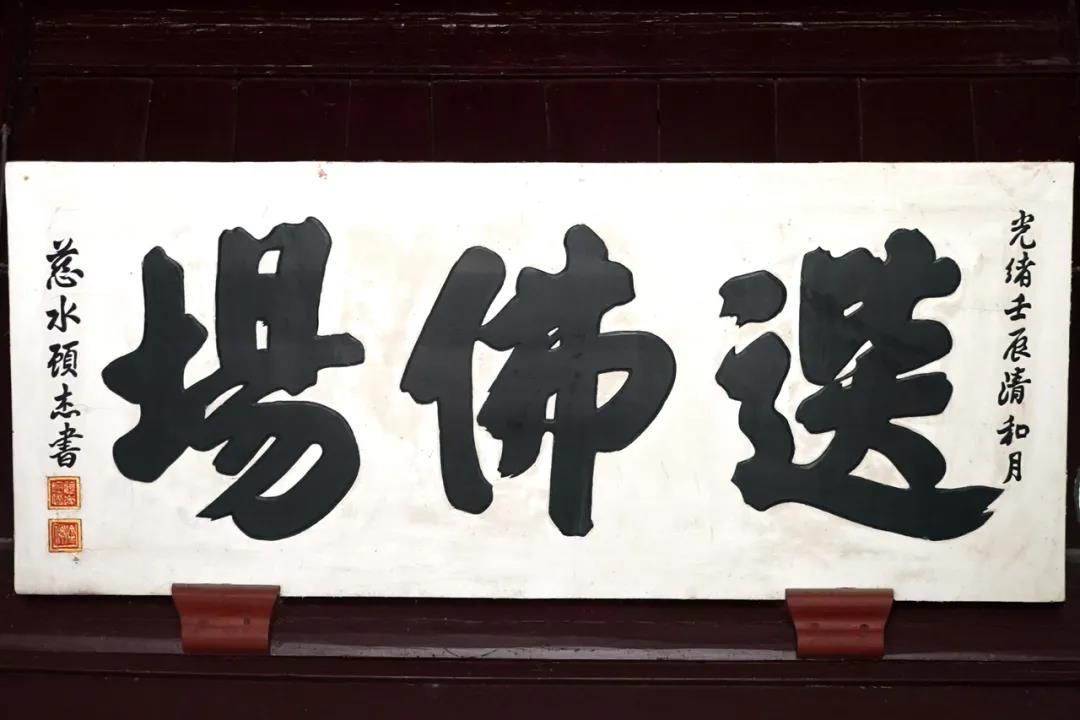 光緒壬辰清和月
選佛場
慈水頋杰書